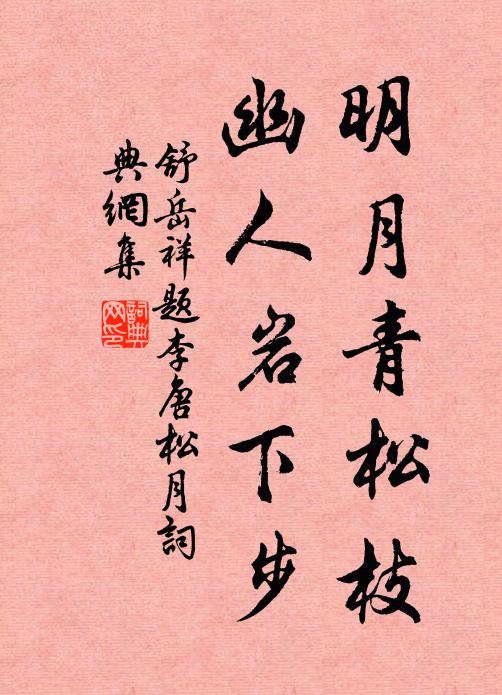 明月青松枝
幽人岩下步
舒岳祥题李唐松月詞
典網集
詞典
网印